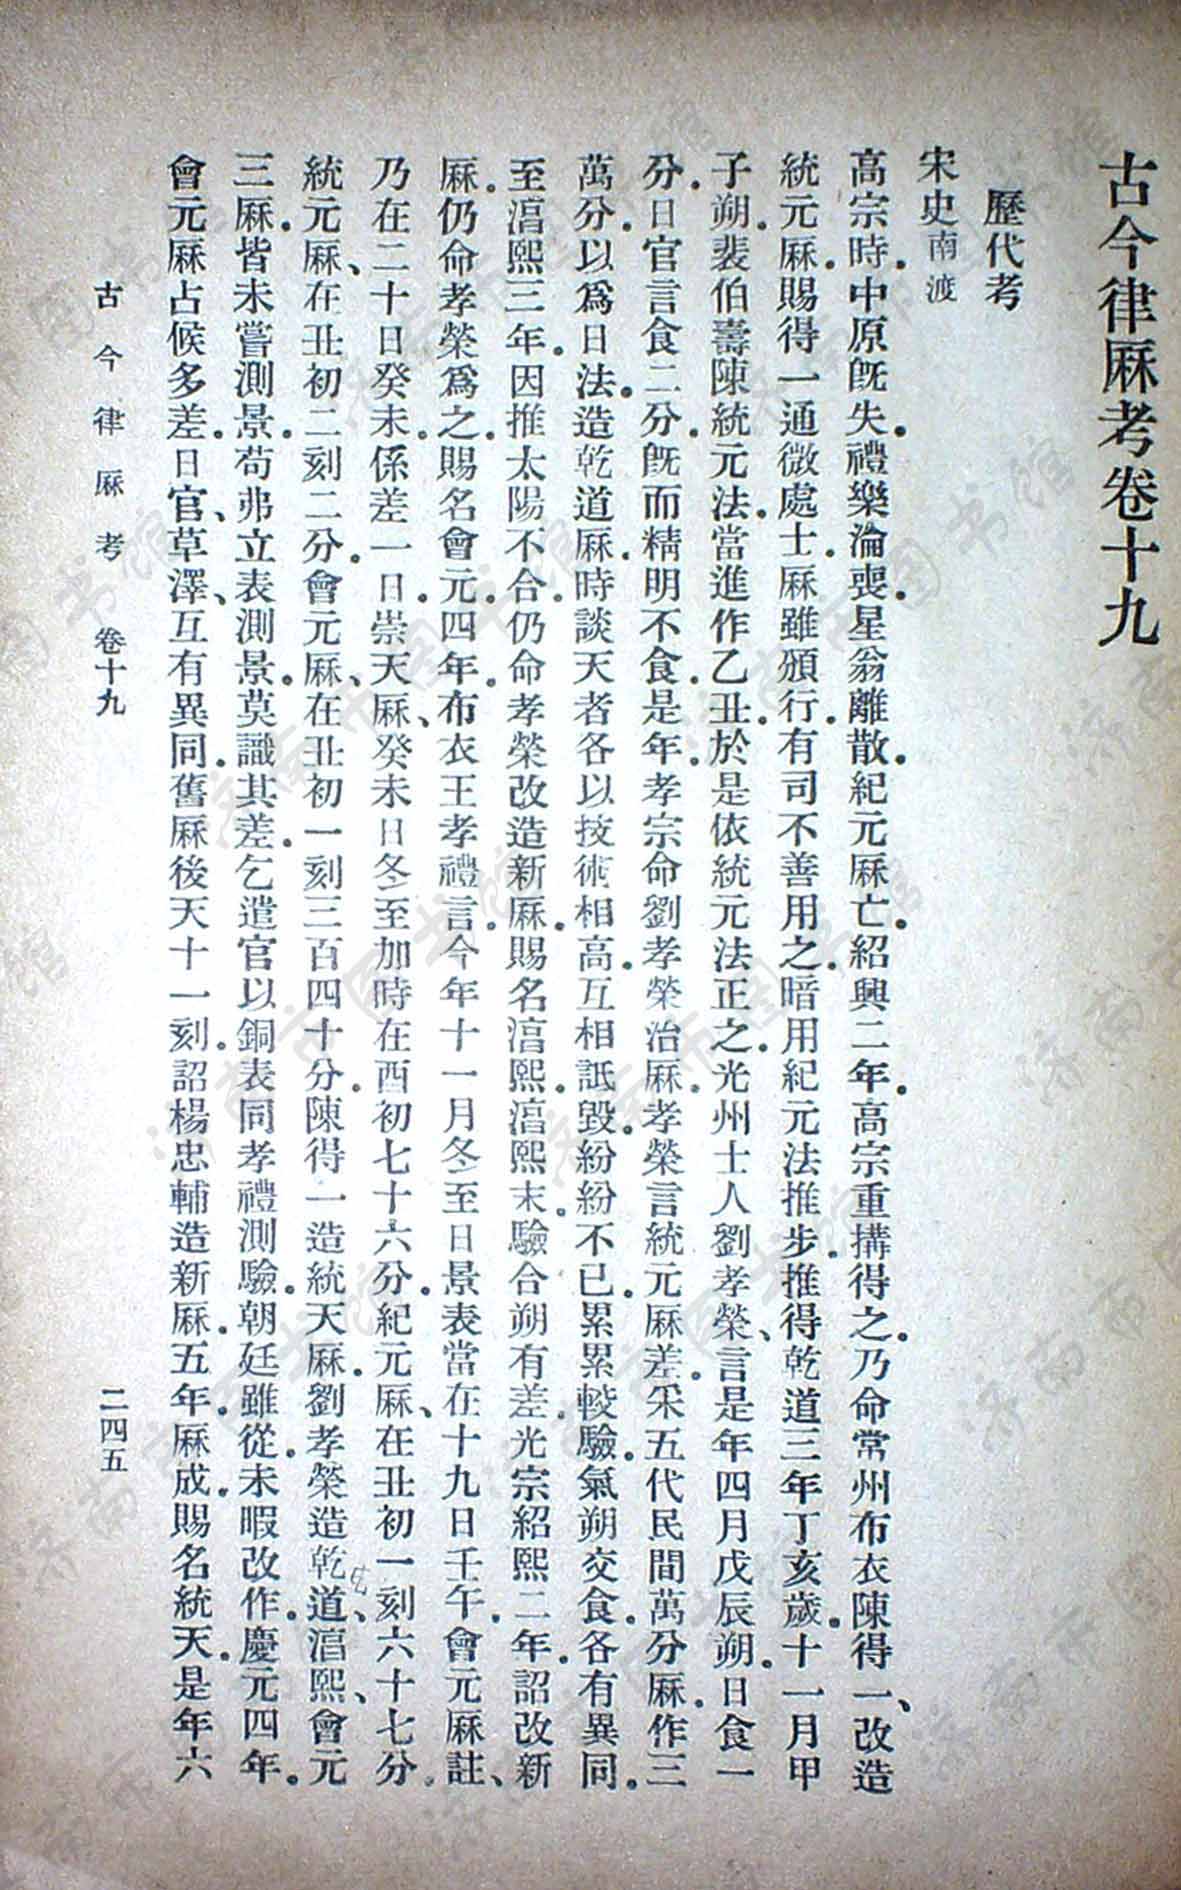 古今律厤考卷十九
歷代考
宋史南渡
高宗時。中原旣失。禮樂淪喪。星翁離散。紀元厤亡。紹興二年。高宗重搆得之。乃命常州布衣陳得一、改造
統元厤。賜得一通微處士。厤雖頒行。有司不善用之。暗用紀元法推步。推得乾道三年丁亥歲。十一月甲
子朔。裴伯壽陳統元法。當進作乙丑。於是依統元法正之。光州士人劉孝榮、言是年四月戊辰朔。日食一
分。日官言食二分。旣而精明不食。是年。孝宗命劉孝榮治厤。孝榮言統元厤差。采五代民間萬分厤。作三
萬分。以爲日法。造乾道厤。時談天者各以技術相高。互相詆毀。紛紛不已。累累較驗。氣朔交食。各有異同。
至湻熙三年。因推太陽不合。仍命孝榮改造新厤。賜名湻熙。湻熙末。驗合朔有差。光宗紹熙二年。詔改新
厤。仍命孝榮爲之。賜名會元。四年。布衣王孝禮言。今年十一月冬至日景表當在十九日壬午。會元厤註、
乃在二十日癸未。係差一日。崇天厤、癸未日冬至加時在酉初七十六分。紀元厤、在丑初一刻六十七分。
統元厤、在丑初二刻二分。會元厤、在丑初一刻三百四十分。陳得一造統天厤。劉孝榮造乾道、湻熙、會元
三厤。皆未嘗測景。苟弗立表測景。莫識其差。乞遣官以銅表同孝禮測驗。朝廷雖從。未暇改作。慶元四年。
會元厤占候多差。日官、草澤、互有異同。舊厤後天十一刻。詔楊忠輔造新厤。五年。厤成。賜名統天。是年六
古今律厤考 卷十九 二四五
济南市图书馆